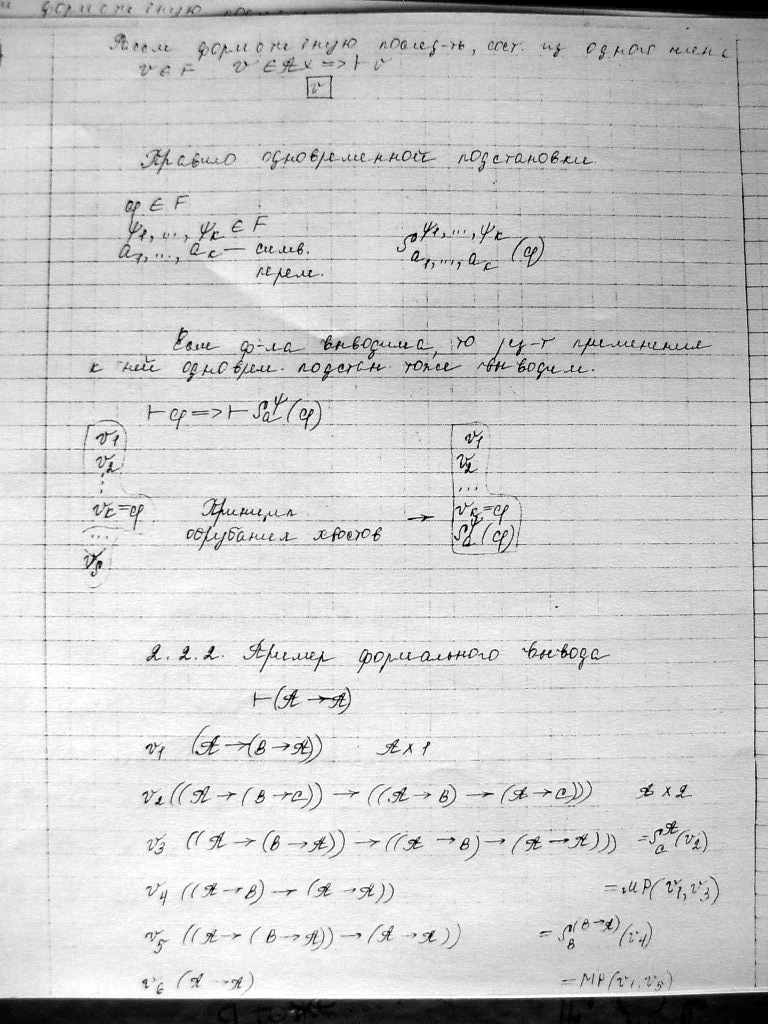 Рассм формотиную послед-ть, сост. из одного члена
v ∈ F v ∈ Ax => ⊢ v
v
Правило одновременной подстановки.
φ ∈ F
ψ1, ..., ψk ∈ F
a1, ..., ak — симв. перем.
S^{ψ1, ..., ψk}_{a1, ..., ak} (φ)
Если ф-ла выводима, то рез-т применения
к ней одноврем. подстан. тоже выводим.
⊢ φ => ⊢ S^ψ_a (φ)
v1
v2
⋮
vk = φ
...
vs
Принцип
обрубания хвостов →
v1
v2
...
vk = φ
S^ψ_a (φ)
2.2.2. Пример формального вывода
⊢ (A → A)
v1 (A → (B → A)) Ax1
v2 ((A → (B → C)) → ((A → B) → (A → C))) Ax2
v3 ((A → (B → A)) → ((A → B) → (A → A))) = S^A_C (v2)
v4 ((A → B) → (A → A)) = MP(v1, v3)
v5 ((A → (B → A)) → (A → A)) = S^{(B → A)}_B (v4)
v6 (A → A) = MP(v1, v5)